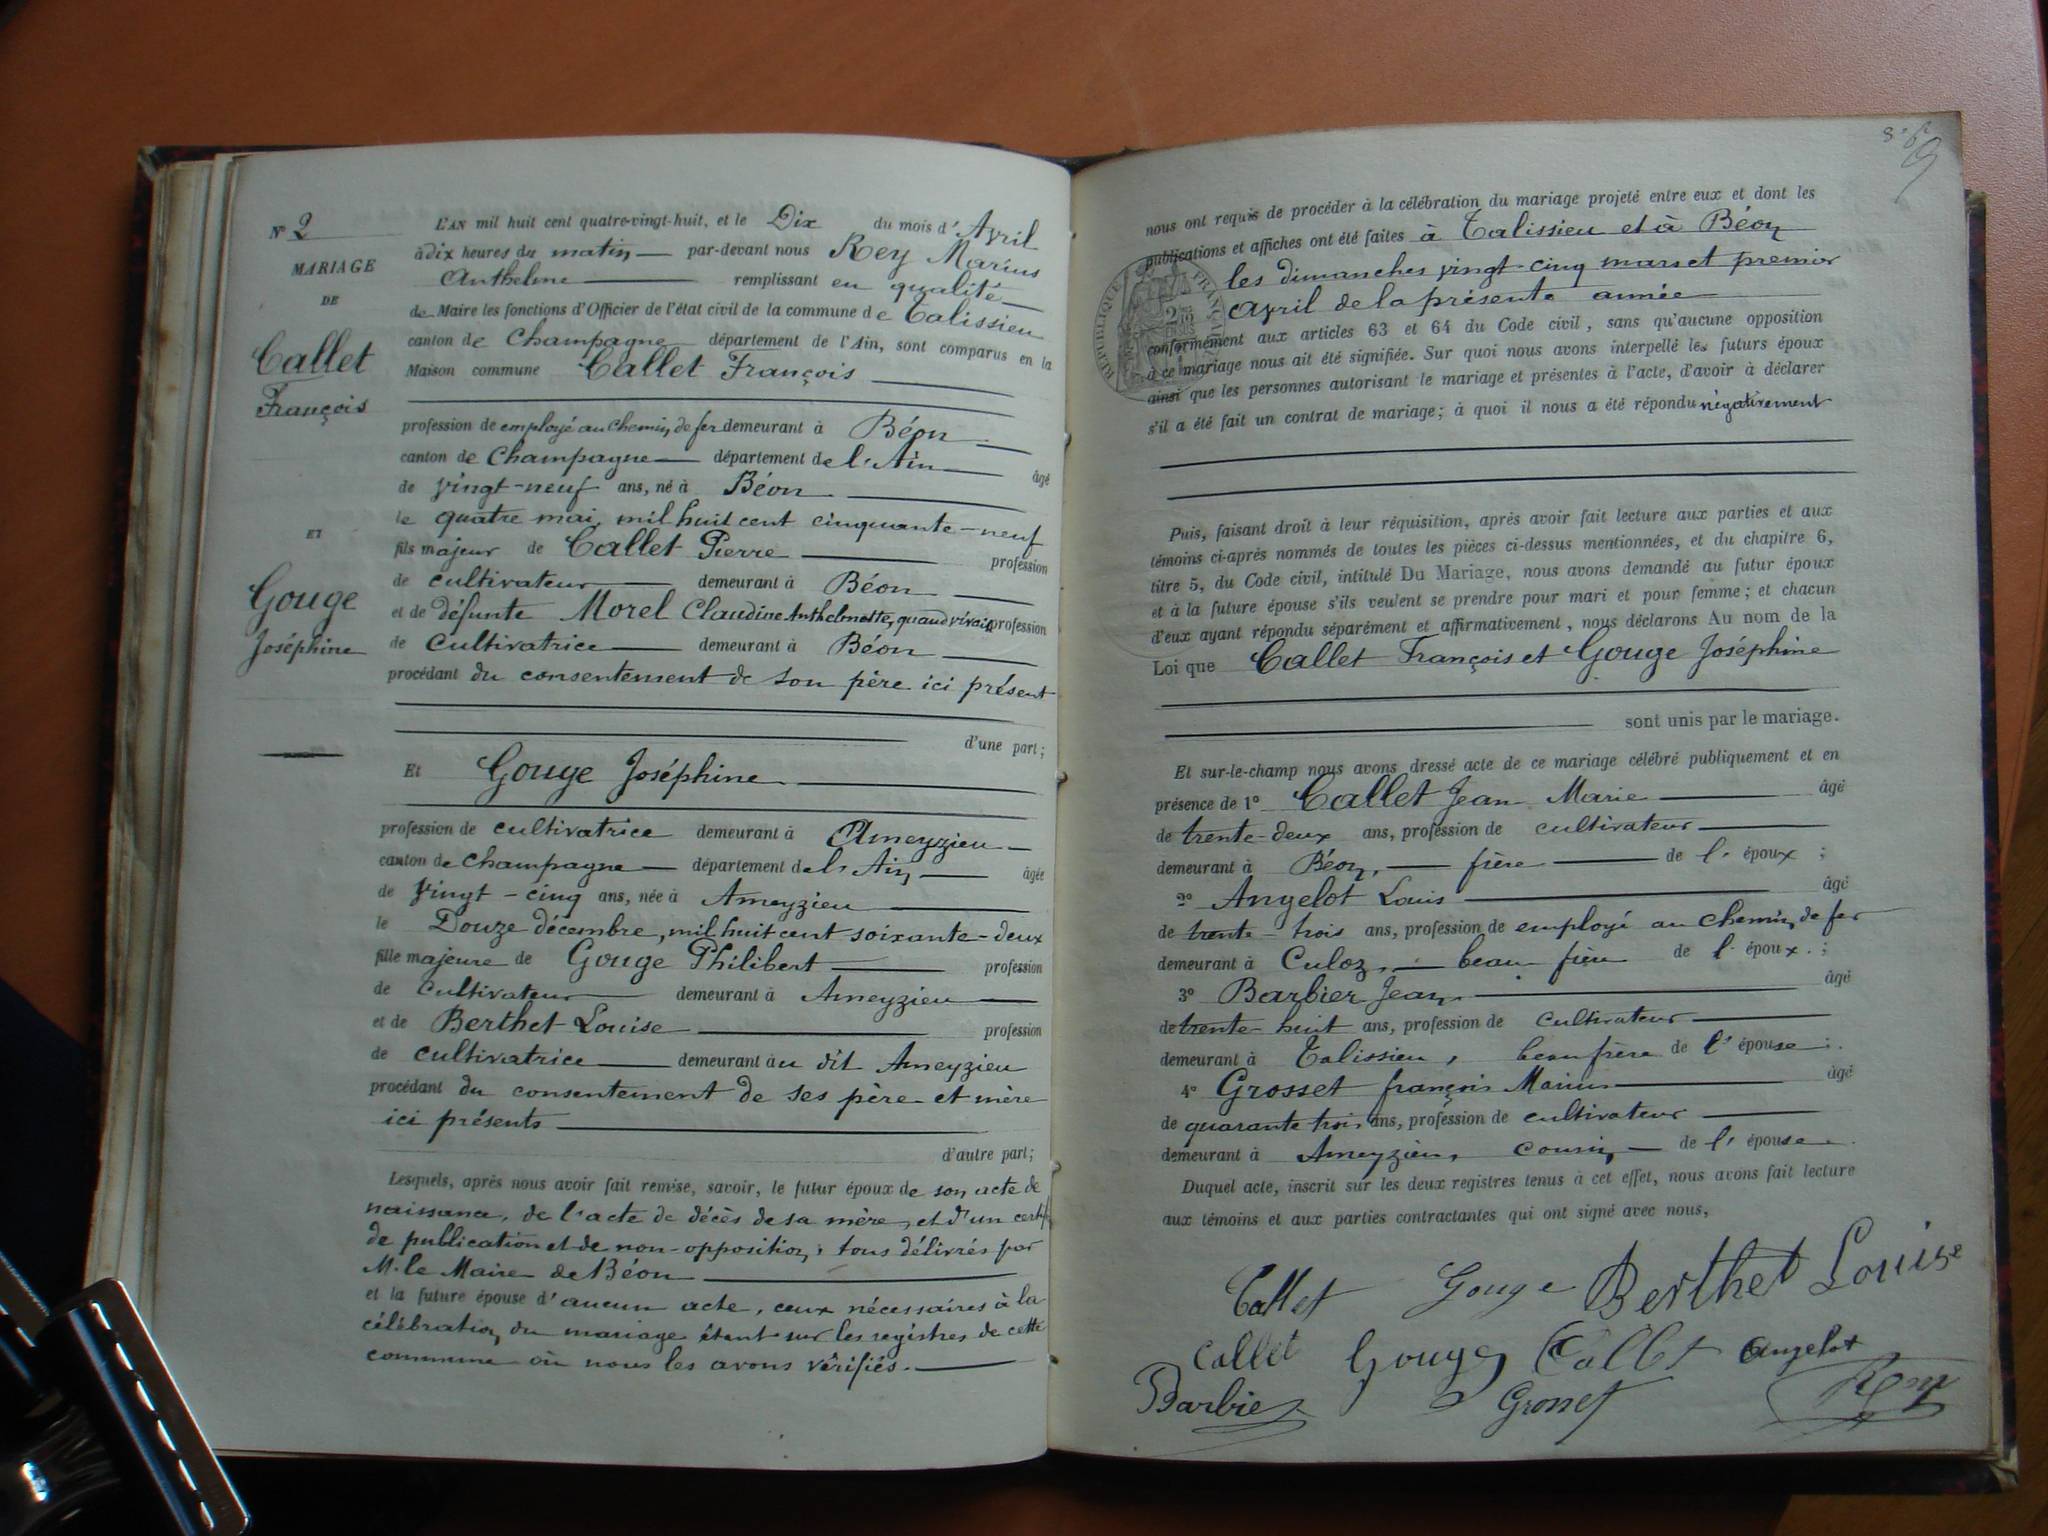 N° 2
MARIAGE
DE
Callet
François
ET
Gouge
Joséphine
L'AN mil huit cent quatre-vingt-huit, et le Dix du mois d'Avril
à dix heures du matin par-devant nous Rey Marius
Anthelme remplissant en qualité
de Maire les fonctions d'Officier de l'état civil de la commune de Talissieu
canton de Champagne département de l'Ain, sont comparus en la
Maison commune Callet François
profession de employé au chemin de fer demeurant à Béon
canton de Champagne département de l'Ain âgé
de vingt-neuf ans, né à Béon
le quatre mai mil huit cent cinquante-neuf
fils majeur de Callet Pierre profession
de cultivateur demeurant à Béon
et de défunte Morel Claudine Anthelmette, quand vivait profession
de cultivatrice demeurant à Béon
procédant du consentement de son père ici présent
d'une part;
Et Gouge Joséphine
profession de cultivatrice demeurant à Ameyzieu
canton de Champagne département de l'Ain âgée
de vingt-cinq ans, née à Ameyzieu
le Douze décembre, mil huit cent soixante-deux
fille majeure de Gouge Philibert profession
de cultivateur demeurant à Ameyzieu
et de Berthet Louise profession
de cultivatrice demeurant au dit Ameyzieu
procédant du consentement de ses père et mère
ici présents
d'autre part;
Lesquels, après nous avoir fait remise, savoir, le futur époux de son acte de
naissance, de l'acte de décès de sa mère, et d'un certif
de publication et de non-opposition, tous délivrés par
M. le Maire de Béon
et la future épouse d'aucun acte, ceux nécessaires à la
célébration du mariage étant sur les registres de cette
commune où nous les avons vérifiés.
nous ont requis de procéder à la célébration du mariage projeté entre eux et dont les
publications et affiches ont été faites à Talissieu et à Béon
les dimanches vingt-cinq mars et premier
Avril de la présente année
RÉPUBLIQUE FRANÇAISE
conformément aux articles 63 et 64 du Code civil, sans qu'aucune opposition
à ce mariage nous ait été signifiée. Sur quoi nous avons interpellé les futurs époux
ainsi que les personnes autorisant le mariage et présentes à l'acte, d'avoir à déclarer
s'il a été fait un contrat de mariage; à quoi il nous a été répondu négativement
Puis, faisant droit à leur réquisition, après avoir fait lecture aux parties et aux
témoins ci-après nommés de toutes les pièces ci-dessus mentionnées, et du chapitre 6,
titre 5, du Code civil, intitulé Du Mariage, nous avons demandé au futur époux
et à la future épouse s'ils veulent se prendre pour mari et pour femme; et chacun
d'eux ayant répondu séparément et affirmativement, nous déclarons Au nom de la
Loi que Callet François et Gouge Joséphine
sont unis par le mariage.
Et sur-le-champ nous avons dressé acte de ce mariage célébré publiquement et en
présence de 1° Callet Jean Marie âgé
de trente-deux ans, profession de cultivateur
demeurant à Béon, frère de l'époux ;
2° Angelot Louis âgé
de trente-trois ans, profession de employé au chemin de fer
demeurant à Culoz, beau frère de l'époux. ;
3° Barbier Jean âgé
de trente-huit ans, profession de cultivateur
demeurant à Talissieu, beau frère de l'épouse ;
4° Grosset françois Marius âgé
de quarante trois ans, profession de cultivateur
demeurant à Ameyzieu, cousin de l'épouse.
Duquel acte, inscrit sur les deux registres tenus à cet effet, nous avons fait lecture
aux témoins et aux parties contractantes qui ont signé avec nous,
Callet Gouge Berthet Louise
Callet Gouge Callet Angelot
Barbier Grosset Rey